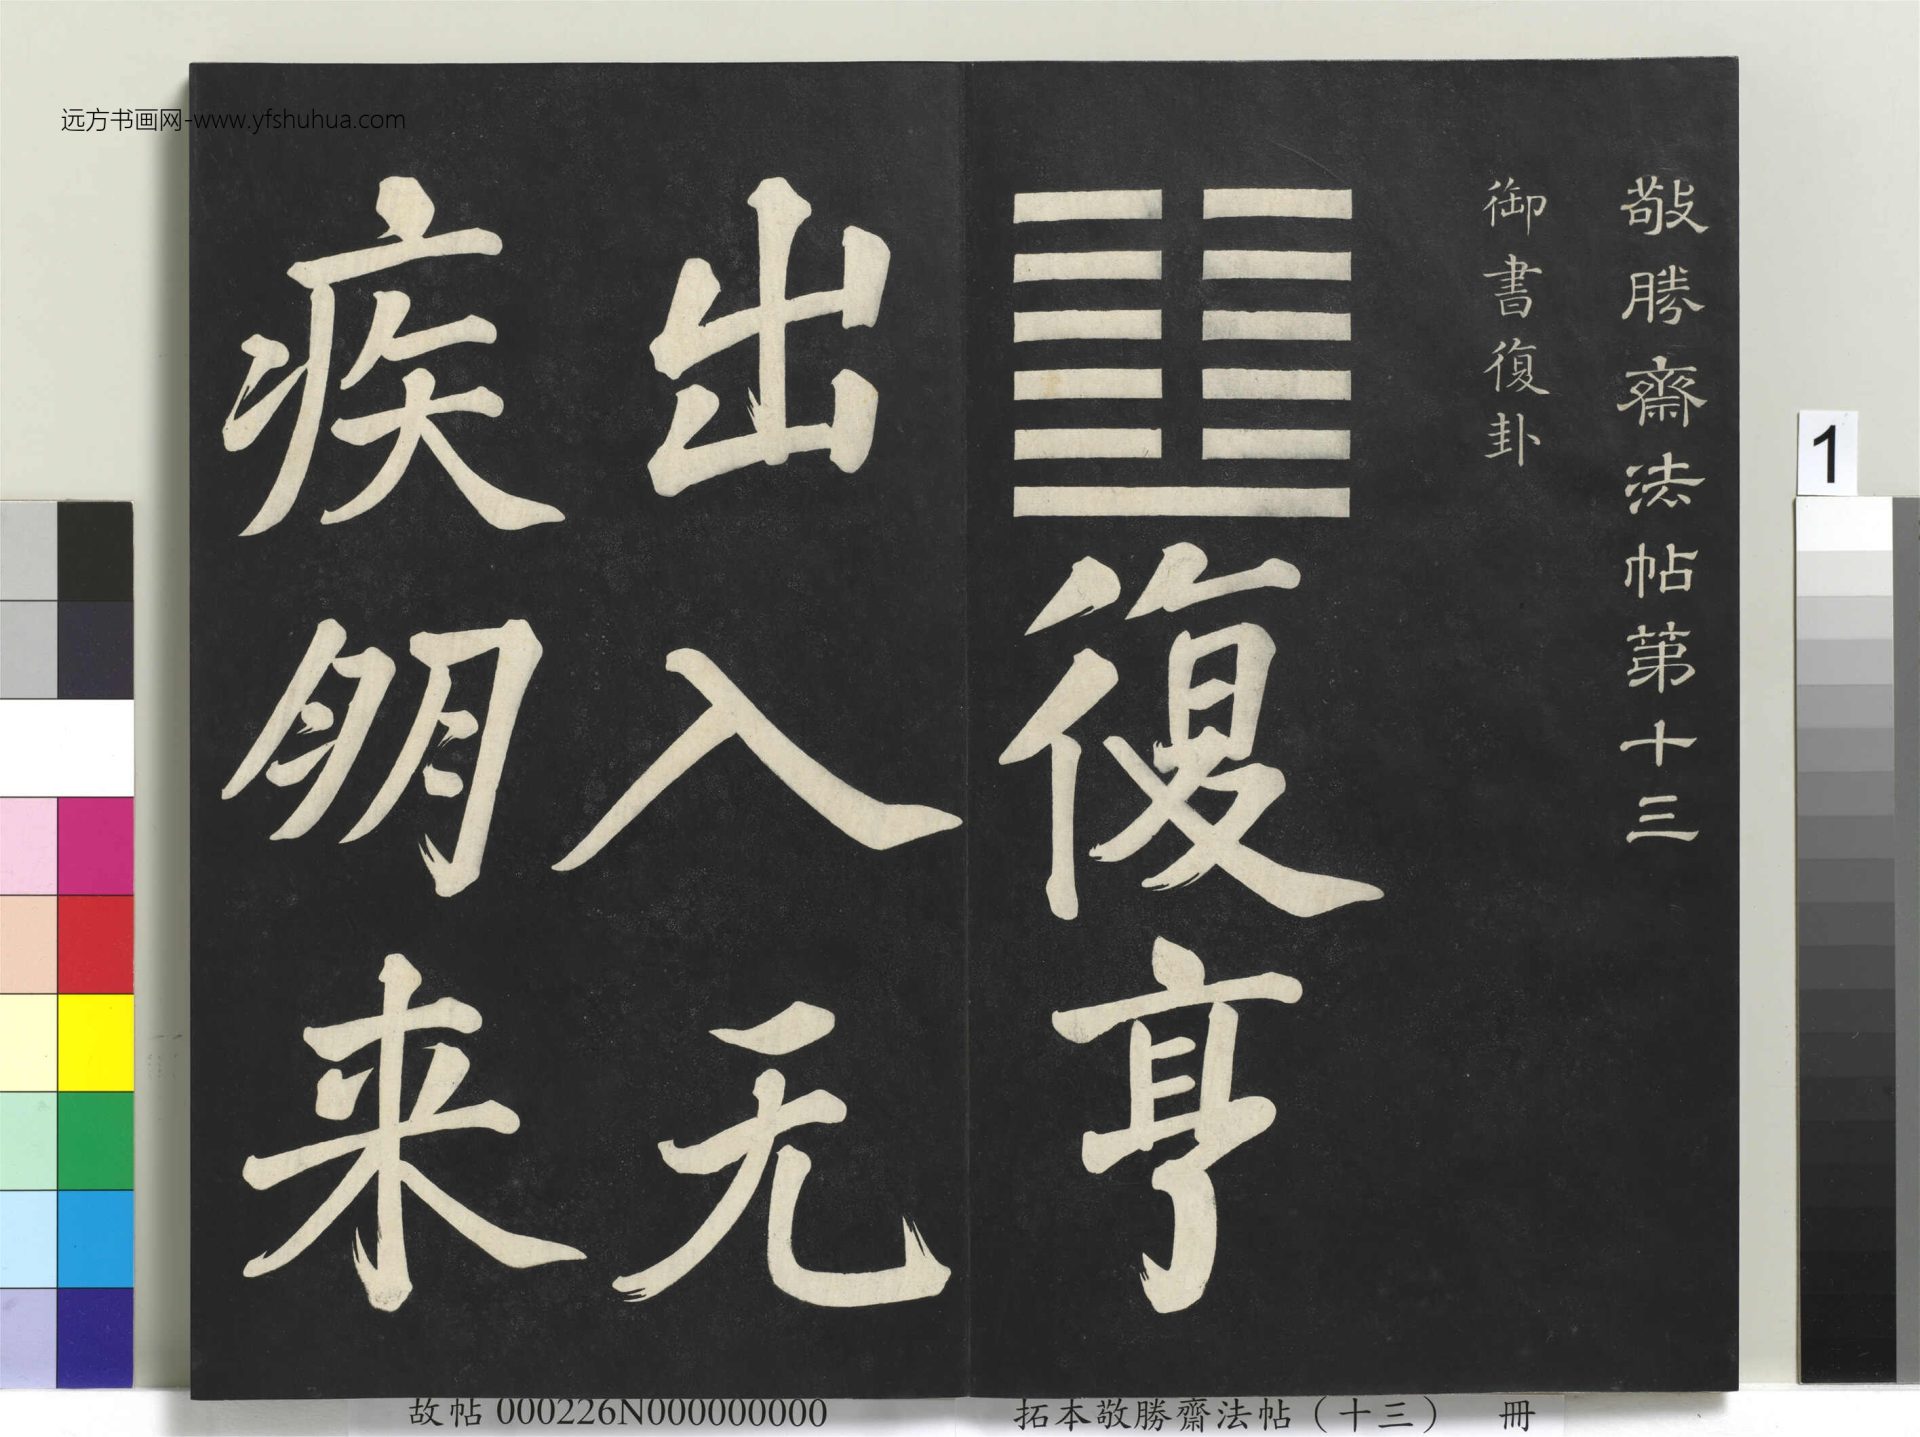 敬勝齋法帖第十三
御書復卦
䷗復亨
出入无
疾朋来
远方书画网-www.yfshuhua.com
1
故帖 000226N000000000
拓本敬勝齋法帖（十三） 冊